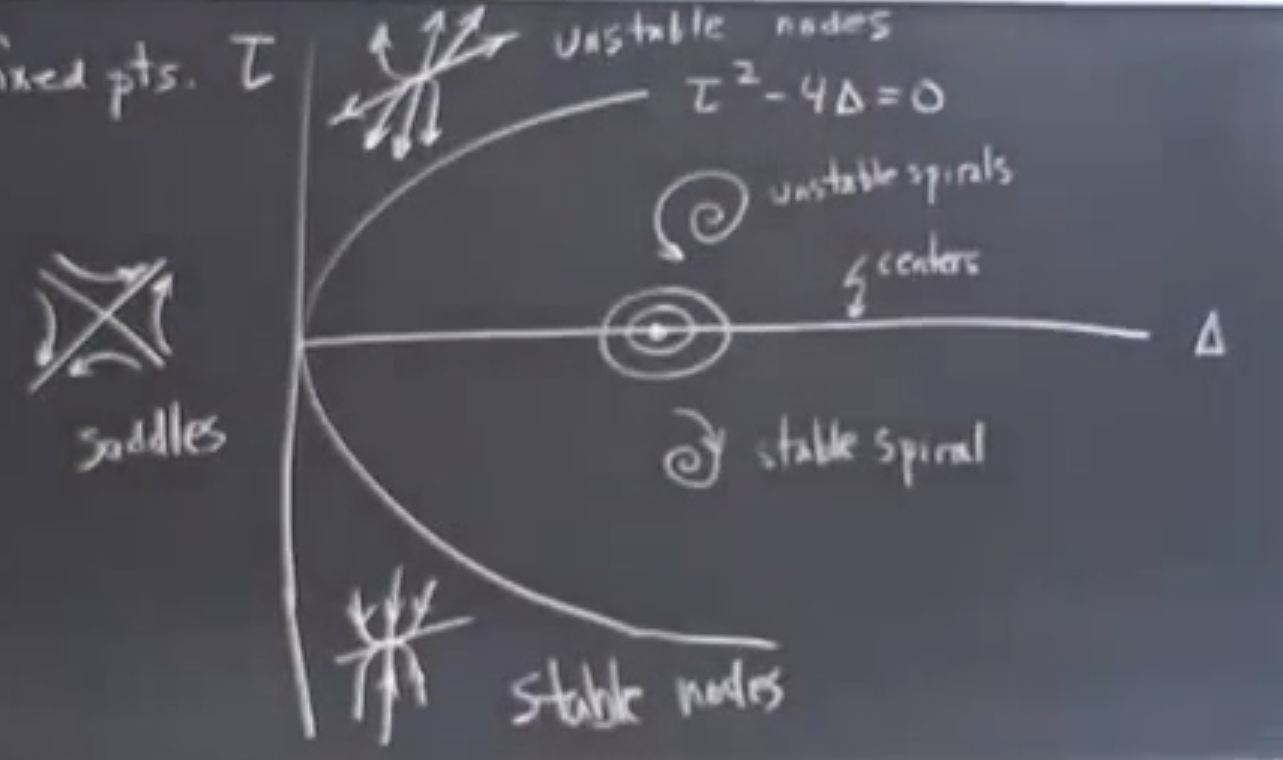 fixed pts. τ
unstable nodes
τ² - 4Δ = 0
unstable spirals
centers
Δ
saddles
stable spiral
stable nodes